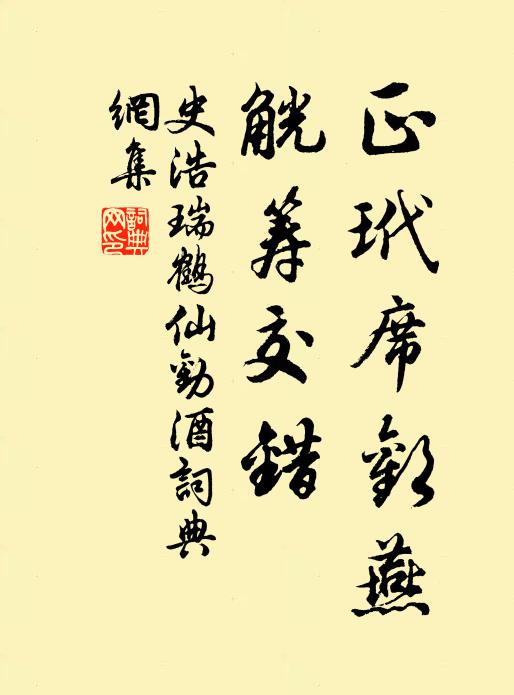 正玳席歡燕
觥籌交錯
史浩瑞鶴仙勸酒詞典
網集
詞典
网印